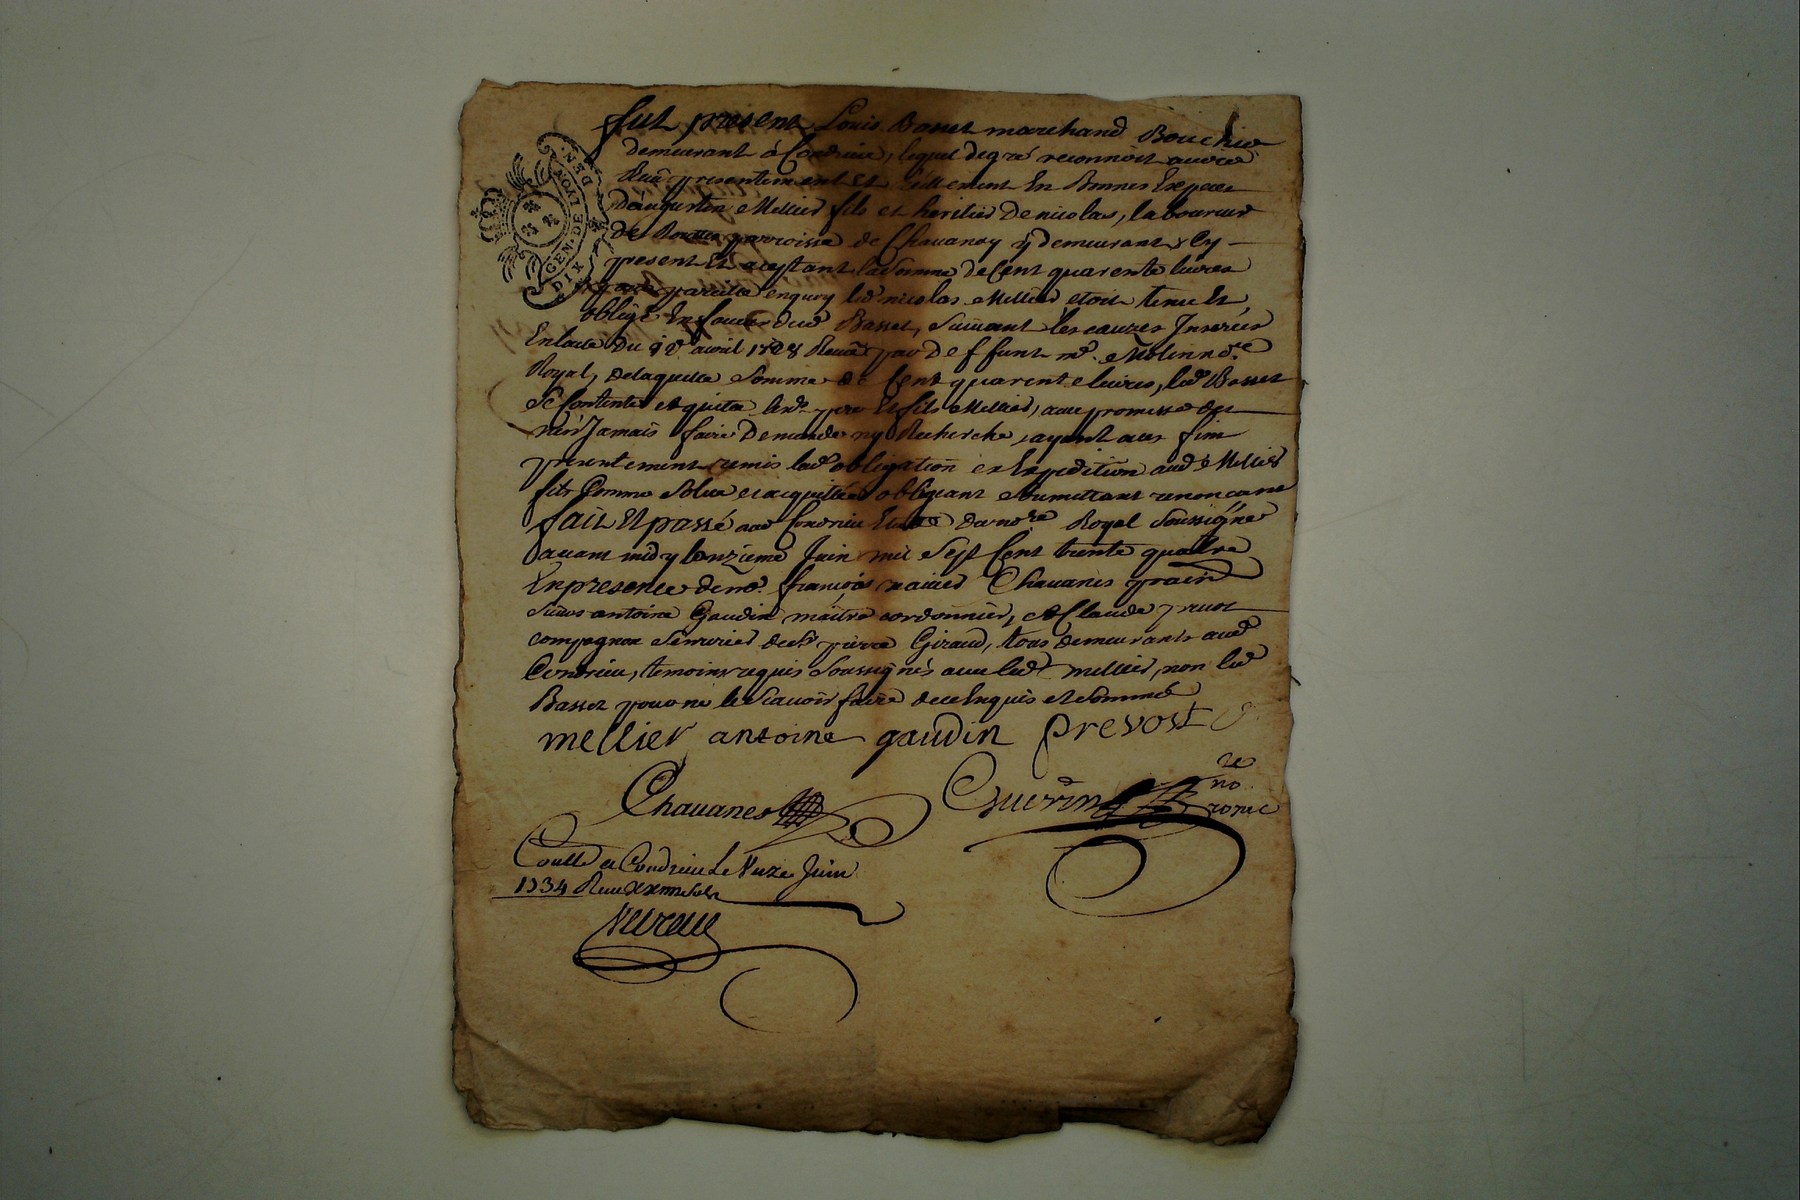 fut present Louis Basset marchand Boucher
demeurant à Condrieu, lequel de gré reconnoit avoir
Receu presentement et réellement En Bonnes Especes
D'augustin Mellier fils et heritier De nicolas, laboureur
de parroisse de Chavanay y demeurant & Cy
present Et aceptant la Somme de Cent quarente livres
pareille en quoy led. nicolas Mellier etoit tenu Et
obligé En faveur dud Basset, suivant les causes Inserées
En lacte Du avril 1728 Receu par Deffunt mr. Molin no.re
Royal, de laquelle Somme de Cent quarente livres, led Basset
Se Contente et quitte led. fils Mellier, avec promesse de
n'en Jamais faire Demande ny Recherche, ayant aux fins
presentement remis lad obligation en Expedition aud Mellier
fils Comme Solue et acquittée obligeant soumettant renonceant
fait Et passé aud Condrieu Etude du no.re Royal Soussigné
avant midy le onzieme Juin mil Sept Cent trente quatre
En presence de mr. françois xavier Chavanes prat.n
sieur antoine Gaudin maître cordonnier, et Claude prevot
compagnon serrurier de sr pierre Giraud, tous demeurants aud
Condrieu, temoins requis Soussignés avec led mellier, non led
Basset pour ne le Scavoir faire de ce Enquis et Sommé
mellier antoine gaudin prevost
Chavanes Guerin no.re royal
Conllé a Condrieu Le Unze Juin
1734 Receu sols
DIX DEN. GEN. DE LYON